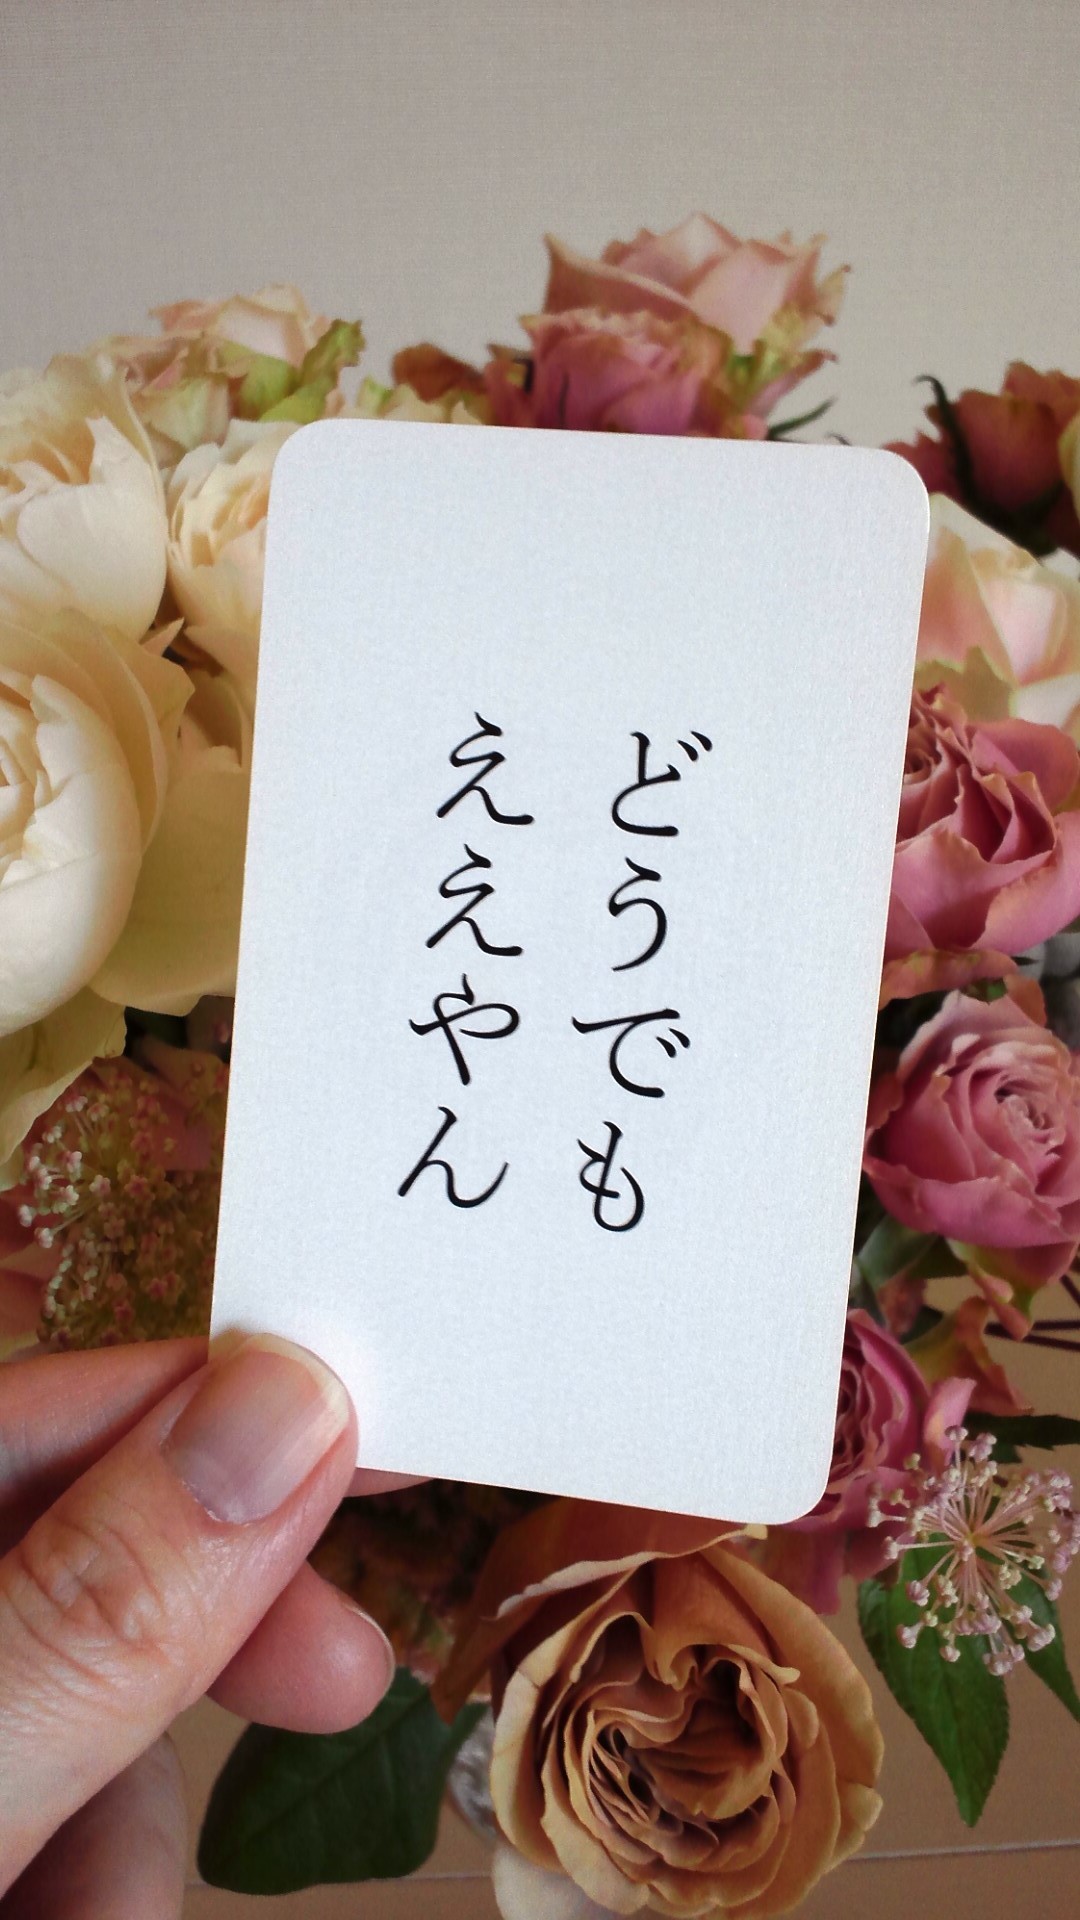 どうでも
ええやん